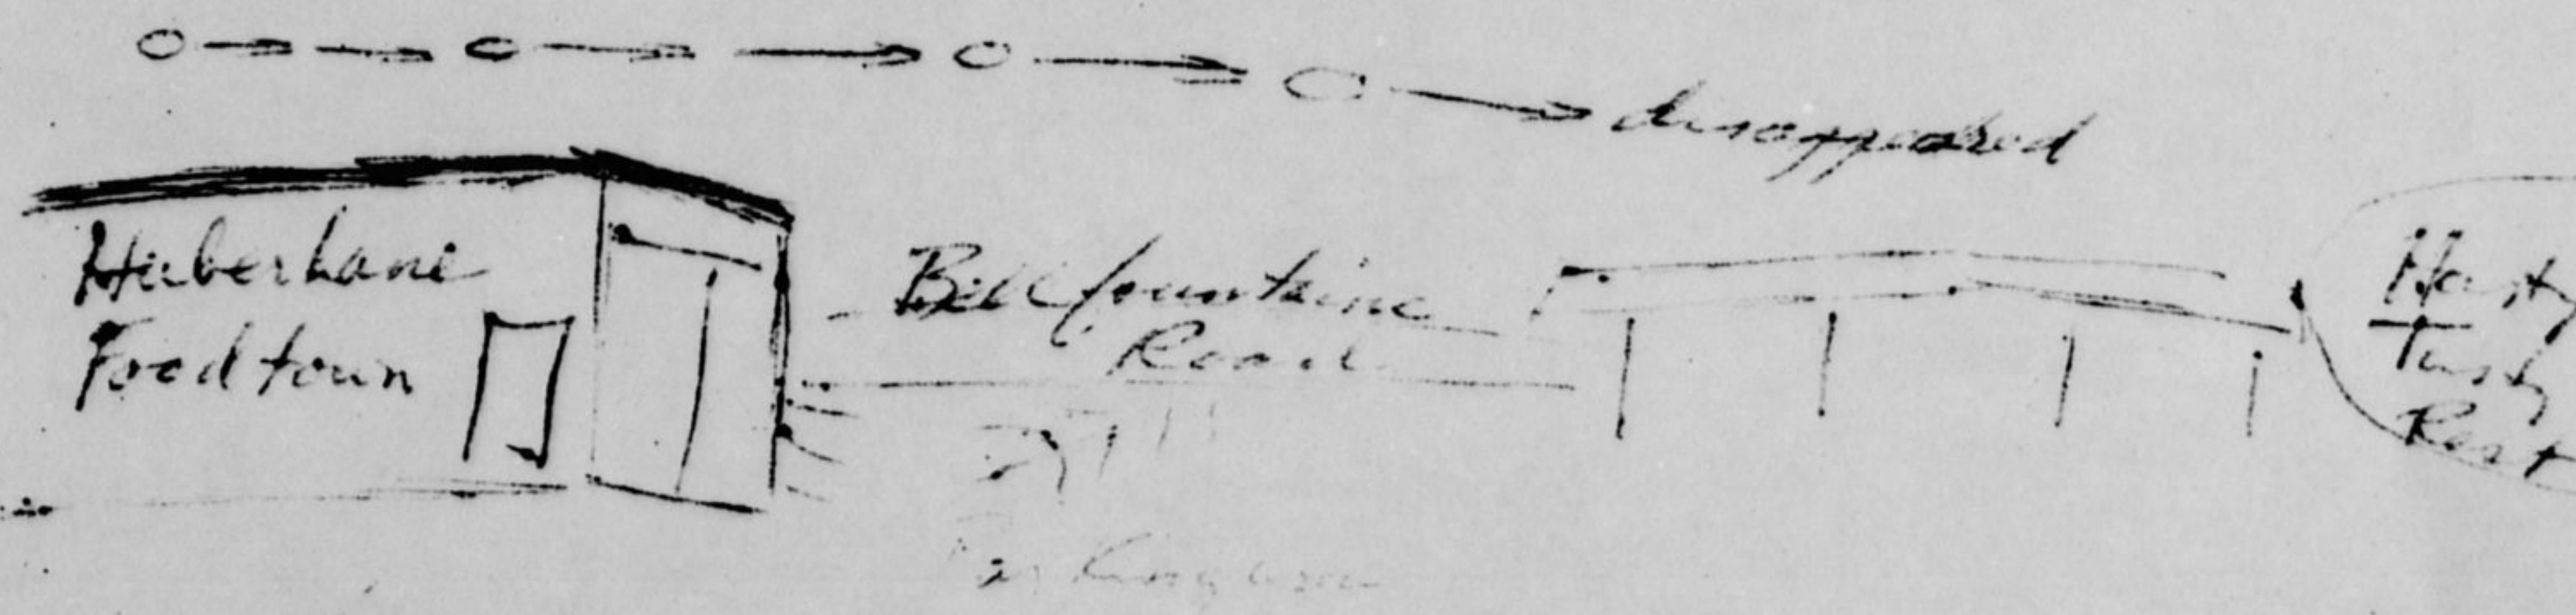 disappeared
Huberhane
Foodtown
Bellfountaine
Road
Hasty
Tasty
Rest
Parking area